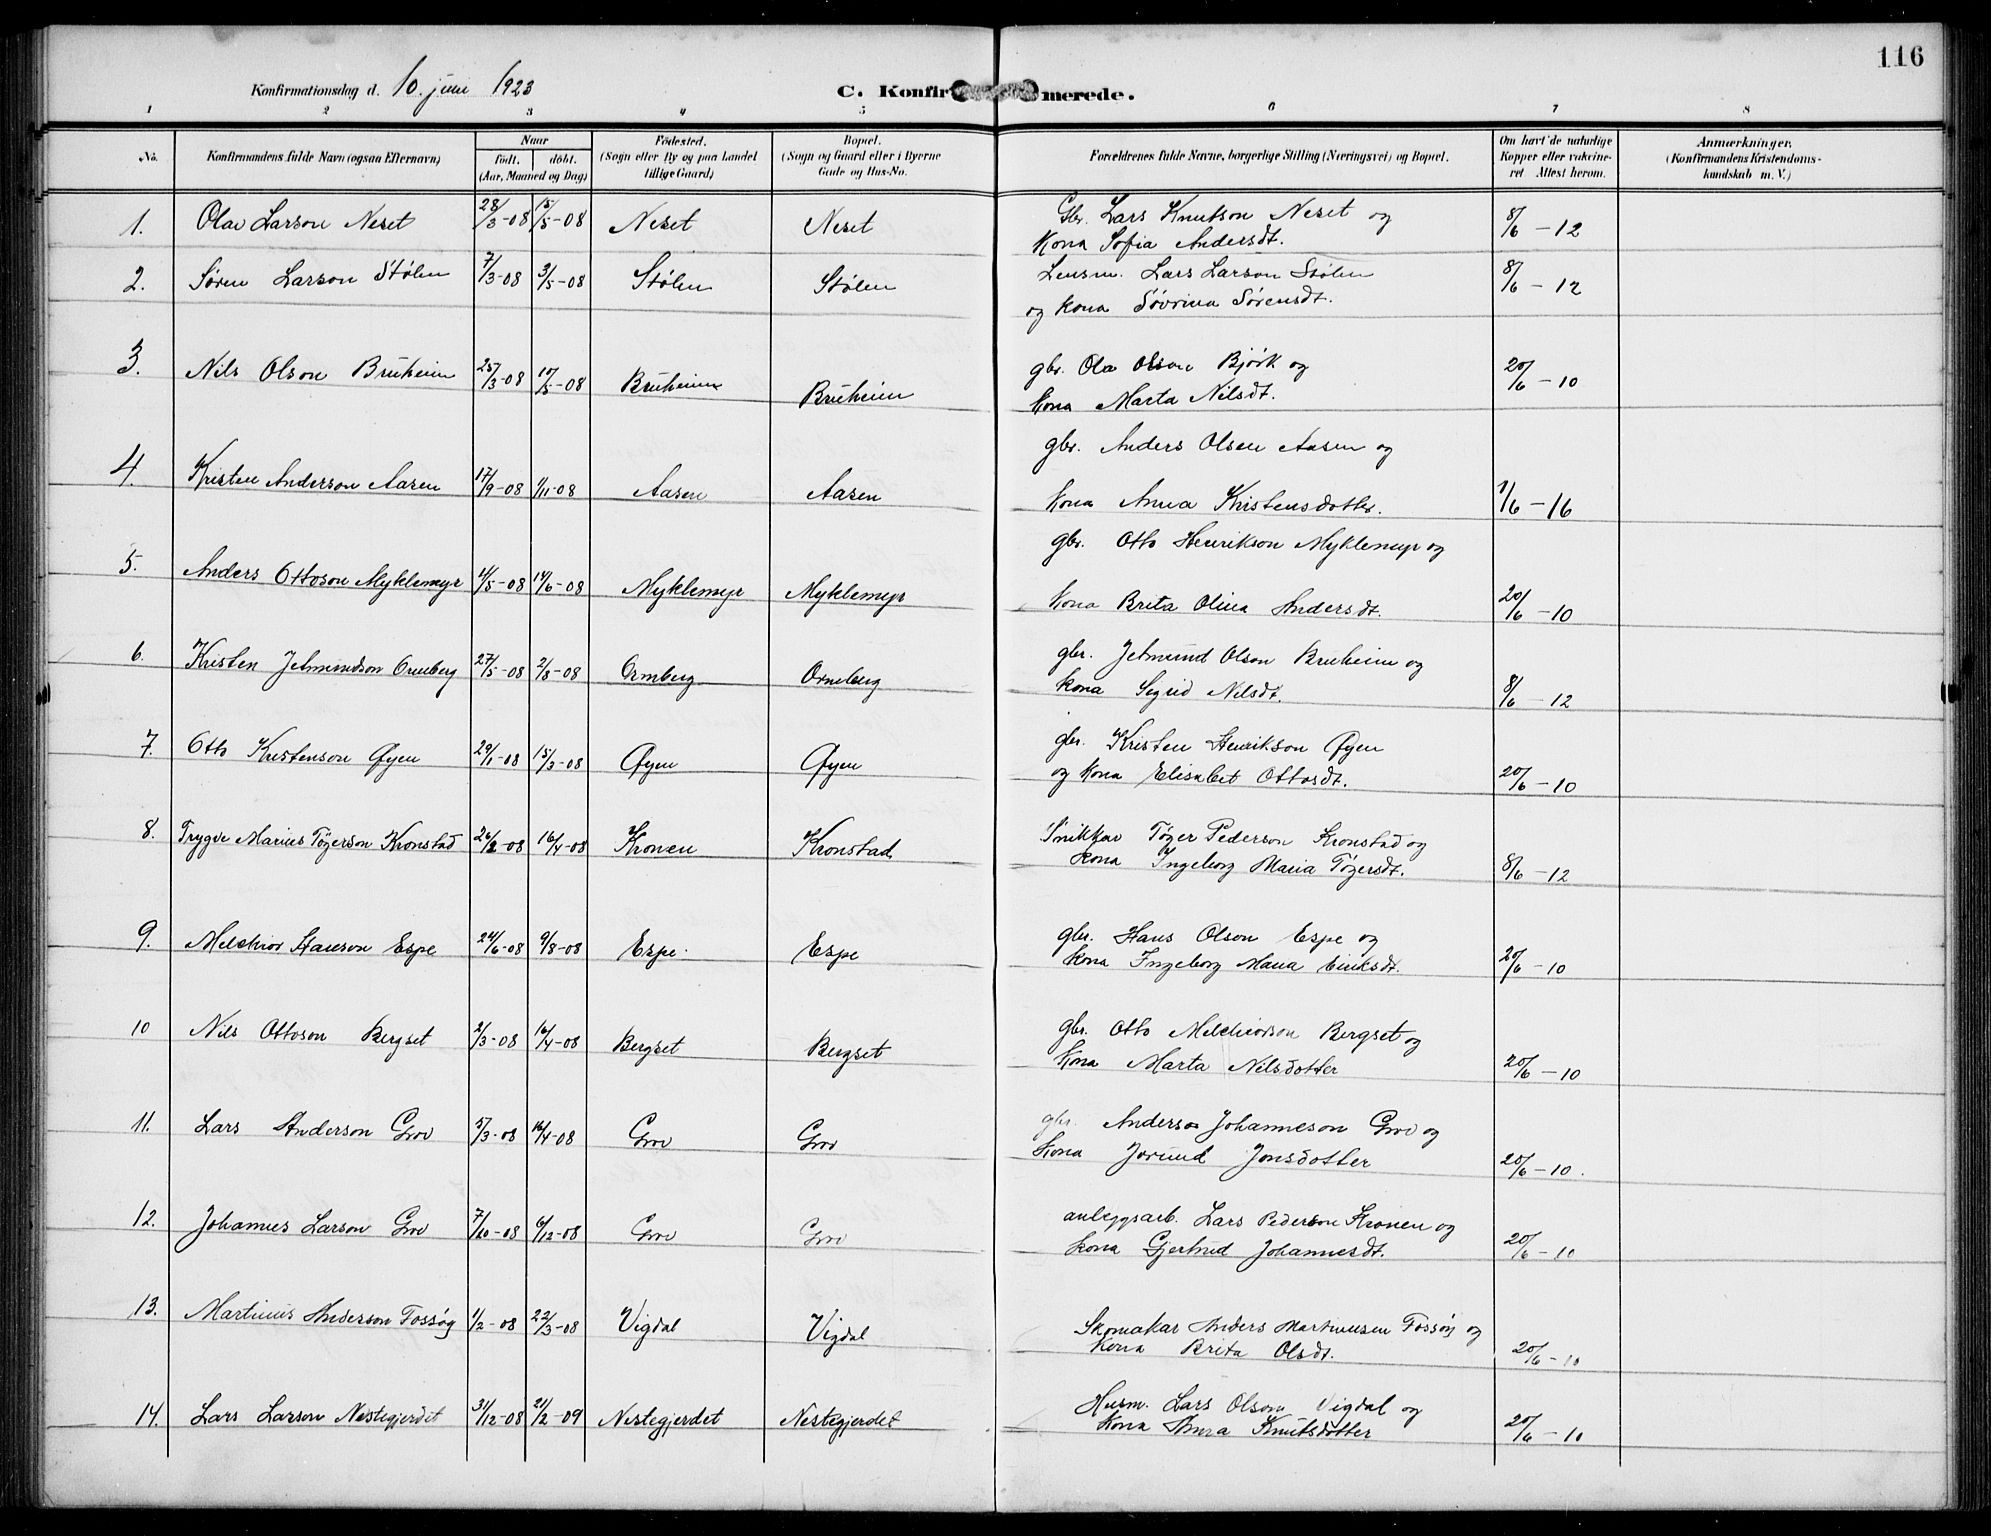 116
Konfirmationsdag d. 10. juni 1923
C. Konfir merede.
1 2 3 4 5 6 7 8
No. Konfirmandens fulde Navn (ogsaa Efternavn) Naar født. døbt. (Aar, Maaned og Dag) Fødested. (Sogn eller By og paa Landet tillige Gaard) Bopæl. (Sogn og Gaard eller i Byerne Gade og Hus-No. Forældrenes fulde Navne, borgerlige Stilling (Næringsvei) og Bopæl. Om havt de naturlige Kopper eller vakcineret Attest herom. Anmærkninger, (Konfirmandens Kristendomskundskab m. V.)
1. Olav Larson Neset 28/3-08 15/5-08 Neset Neset Gbr. Lars Knutson Neset og 8/6 - 12
Kona Sofia Andersdt.
2. Søren Larson Stølen 7/3-08 3/5-08 Stølen Stølen Lensm. Lars Larson Stølen 8/6 - 12
og kona Søvrina Sørensdt.
3. Nils Olson Bruheim 25/3-08 10/5-08 Bruheim Bruheim gbr. Ola Olson Bjørk og 20/6 - 10
Kona Marta Nilsdt.
gbr. Anders Olsen Aasen og
4. Kristen Anderson Aasen 17/9-08 1/11-08 Aasen Aasen Kona Anna Kristensdotter. 1/6 - 16
gbr. Otto Henrikson Myklemyr og
5. Anders Ottoson Myklemyr 11/5-08 14/6-08 Myklemyr Myklemyr Kona Brita Olina Andersdt. 20/6 - 10
6. Kristen Jetmundson Ormberg 27/5-08 2/8-08 Ormberg Ormberg gbr. Jetmund Olson Bruheim og
Kona Sigrid Nilsdt. 8/6 - 12
7. Otto Kristenson Øyen 29/1-08 15/3-08 Øyen Øyen gbr. Kristen Henrikson Øyen
og Kona Elisabet Ottosdt. 20/6 - 10
8. Trygve Marius Tøgerson Kronstad 26/2-08 16/4-08 Kronen Kronstad Snikkar Tøger Pederson Kronstad og
Kona Ingeborg Maria Tøgersdt. 8/6 - 12
9. Melchior Hanson Espe 24/6-08 9/8-08 Espe. Espe gbr. Hans Olson Espe og
Kona Ingeborg Maria Eriksdt. 20/6 - 10
10 Nils Ottoson Bergset 2/3-08 16/4-08 Bergset Bergset gbr. Otto Melchiorson Bergset og
Kona Marta Nilsdotter 20/6 - 10
11. Lars Anderson Grov 5/3-08 16/4-08 Grov Grov gbr. Anders Johanneson Grov og
Kona Jorund Jonsdotter 20/6 - 10.
12. Johannes Larson Grov 7/10-08 6/12-08 Grov Grov anleggsarb. Lars Pederson Kronen og
Kona Gjertrud Johannesdt. 20/6 - 10
13. Martinus Anderson Fossøy 1/2-08 22/3-08 Vigdal Vigdal Skomakar Anders Martinusen Fossøy og
Kona Brita Olsdt. 20/6 - 10
14. Lars Larson Nestegjerdet 31/12-08 21/2-09 Nestegjerdet Nestegjerdet Husm. Lars Olson Vigdal og
Kona Anna Knutsdotter 20/6 - 10